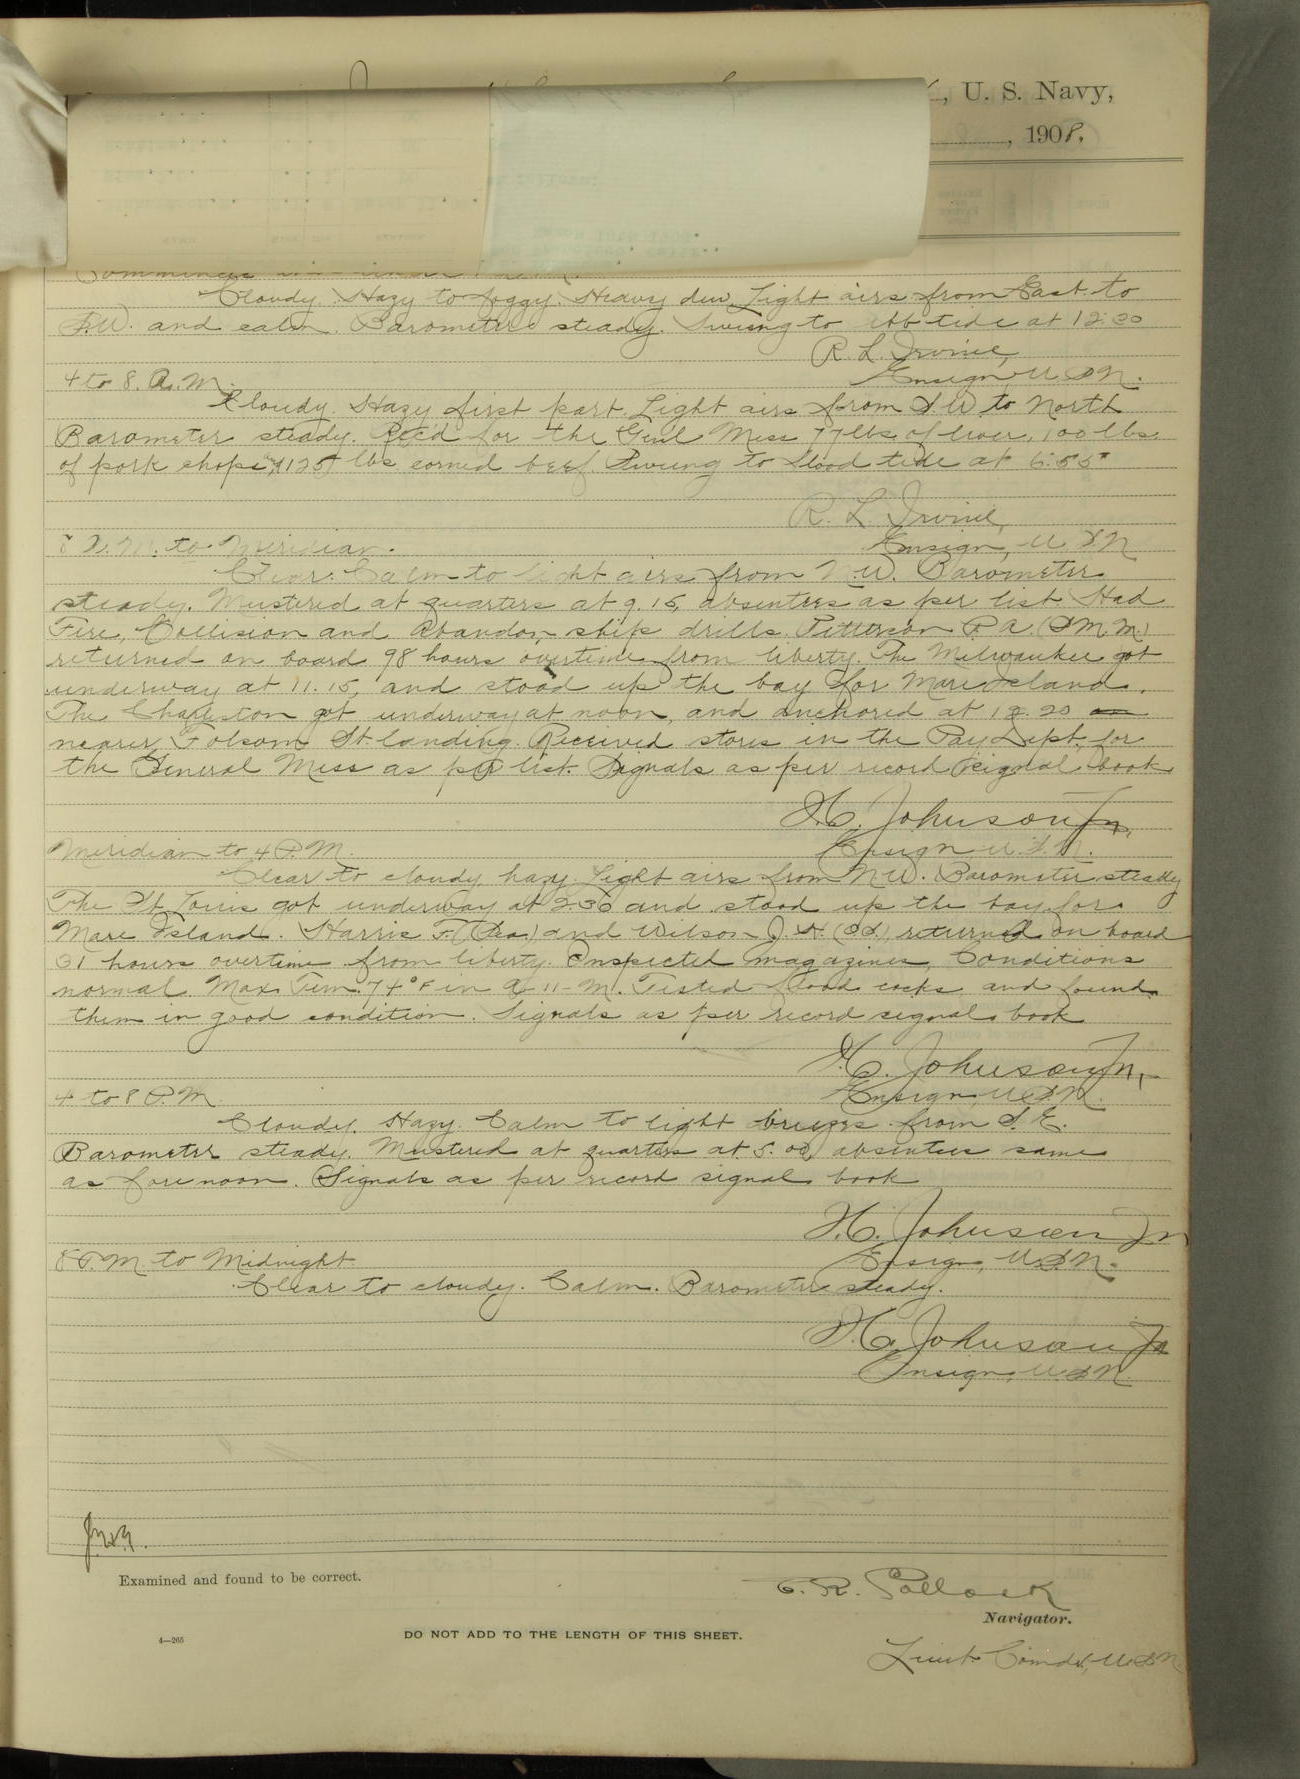 , U. S. Navy,
, 1908.
Cloudy. Hazy to foggy. Heavy dew. Light airs from East to
S.W. and calm. Barometer steady. Swung to ebb tide at 12:20
R. L. Irvine,
Ensign, U.S.N.
4 to 8. A.M.
Cloudy. Hazy first part. Light airs from S.W to North
Barometer steady. Rec'd for the Genl Mess 77 lbs. of liver, 100 lbs.
of pork chops, and 125 lbs corned beef. Swung to flood tide at 6:55
R. L. Irvine,
Ensign, U.S.N
8 A.M. to Meridian.
Clear. Calm to light airs from N.W. Barometer
steady. Mustered at quarters at 9.15, absentees as per list. Had
Fire, Collision and Abandon ship drills. Petterson P.A. (S.M.M.)
returned on board 98 hours overtime from liberty. The Milwaukee got
underway at 11.15, and stood up the bay for Mare Island.
The Charleston got underway at noon, and anchored at 12.20
nearer Folsom St. landing. Received stores in the Pay Dept. for
the General Mess as per list. Signals as per record signal book
H.C. Johnson Jr.,
Ensign U.S.N.
Meridian to 4 P.M.
Clear to cloudy, hazy. Light airs from N.W. Barometer steady
The St. Louis got underway at 2.30 and stood up the bay for
Mare Island. Harris F. (Sea.) and Wilson J. H. (O.S.), returned on board
31 hours overtime from liberty. Inspected magazines, Conditions
normal. Max. Tem. 74°F in A-11-M. Tested flood cocks and found
them in good condition. Signals as per record signal book
H.C. Johnson Jr.,
Ensign, U.S.N.
4 to 8 P.M.
Cloudy. Hazy. Calm to light breezes from S.E.
Barometer steady. Mustered at quarters at 5.00, absentees same
as forenoon. Signals as per record signal book
H.C. Johnson Jr
Ensign, U.S.N.
8 P.M. to Midnight
Clear to cloudy. Calm. Barometer steady.
H.C. Johnson Jr
Ensign, U.S.N.
Examined and found to be correct.
C. R. Pollock
Navigator.
4—265
DO NOT ADD TO THE LENGTH OF THIS SHEET.
Lieut. Comdr, U.S.N